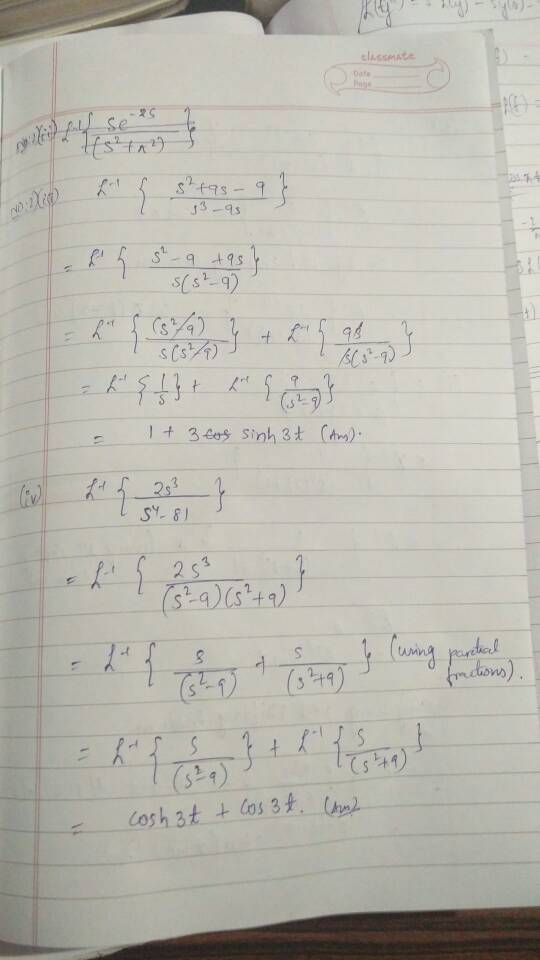 classmate
Date
Page
no:2)(ii) L⁻¹ { se⁻²ˢ / (s² + π²) }
no:2)(iii) L⁻¹ { s² + 9s - 9 / s³ - 9s }
= L⁻¹ { s² - 9 + 9s / s(s² - 9) }
= L⁻¹ { (s² - 9) / s(s² - 9) } + L⁻¹ { 9s / s(s² - 9) }
= L⁻¹ { 1 / s } + L⁻¹ { 9 / (s² - 9) }
= 1 + 3 cos sinh 3t (Ans).
(iv) L⁻¹ { 2s³ / s⁴ - 81 }
= L⁻¹ { 2s³ / (s² - 9)(s² + 9) }
= L⁻¹ { s / (s² - 9) + s / (s² + 9) } (using partial fractions).
= L⁻¹ { s / (s² - 9) } + L⁻¹ { s / (s² + 9) }
= cosh 3t + cos 3t. (Ans)